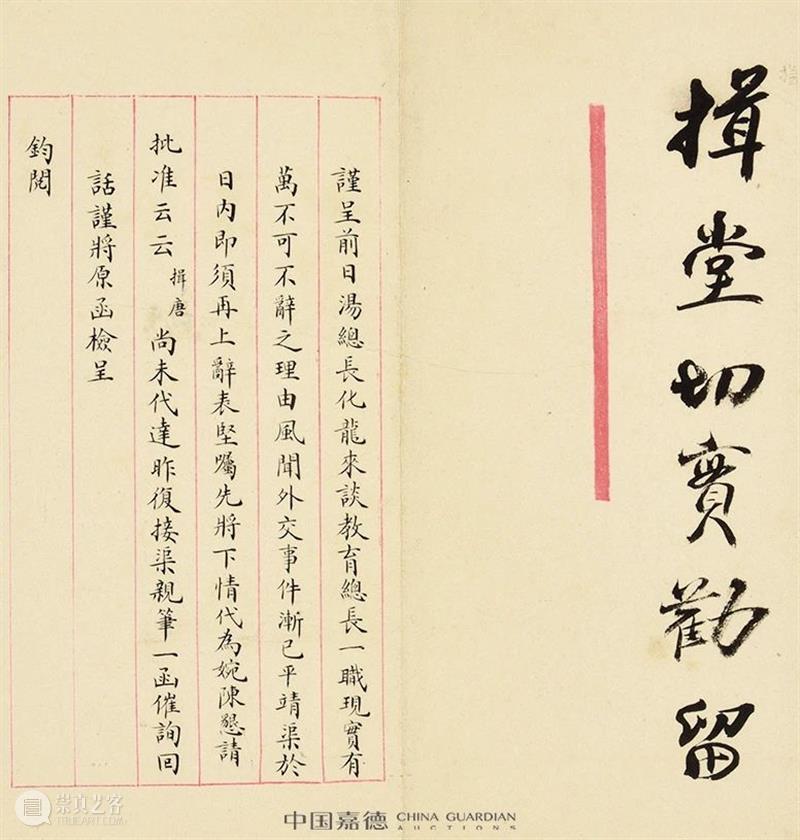 揖堂切實勸留
謹呈前日湯總長化龍來談教育總長一職現實有
萬不可不辭之理由風聞外交事件漸已平靖渠於
日內即須再上辭表堅囑先將下情代為婉陳懇請
批准云云揖唐尚未代達昨復接渠親筆一函催詢回
話謹將原函檢呈
鈞閱
崇真艺客
中国嘉德 CHINA GUARDIAN
AUCTIONS